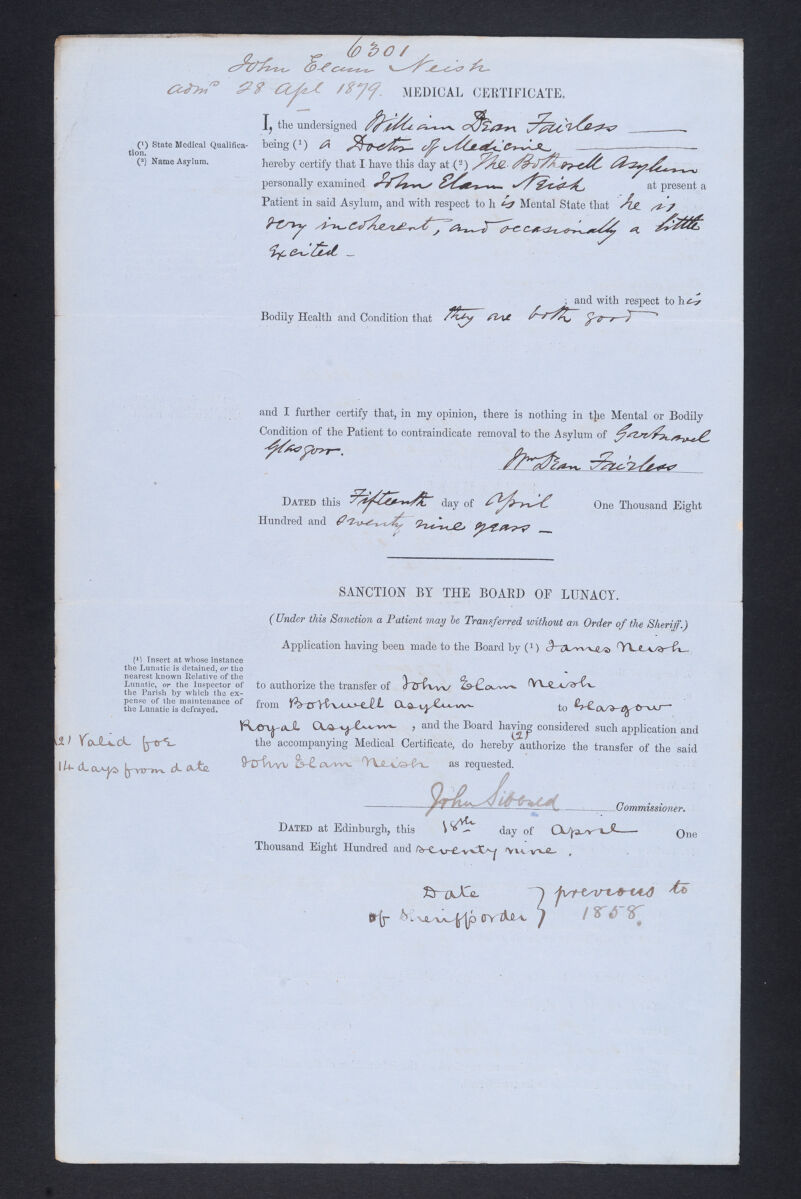 6301
John Elam Neish
admd 28 Apl 1879. MEDICAL CERTIFICATE.
I, the undersigned William Dean Fairless
(1) State Medical Qualification.
being (1) a Doctor of Medicine
(2) Name Asylum.
hereby certify that I have this day at (2) The Bothwell Asylum
personally examined John Elam Neish at present a
Patient in said Asylum, and with respect to his Mental State that he is
very incoherent, and occasionally a little
excited -
; and with respect to his
Bodily Health and Condition that they are both good
and I further certify that, in my opinion, there is nothing in the Mental or Bodily
Condition of the Patient to contraindicate removal to the Asylum of Gartnavel
Glasgow.
Wm Dean Fairless
DATED this Fifteenth day of April One Thousand Eight
Hundred and seventy nine years -
SANCTION BY THE BOARD OF LUNACY.
(Under this Sanction a Patient may be Transferred without an Order of the Sheriff.)
Application having been made to the Board by (1) James Neish
(1) Insert at whose instance
the Lunatic is detained, or the
nearest known Relative of the
Lunatic, or the Inspector of
the Parish by which the ex-
pense of the maintenance of
the Lunatic is defrayed.
to authorize the transfer of John Elam Neish
from Bothwell Asylum to Glasgow
Royal Asylum , and the Board having considered such application and
the accompanying Medical Certificate, do hereby (2) authorize the transfer of the said
John Elam Neish as requested.
(2) Valid for
14 days from date
John Sibbald Commissioner.
DATED at Edinburgh, this 18th day of April One
Thousand Eight Hundred and seventy nine.
Date } previous to
of Sheriff's order } 1858.